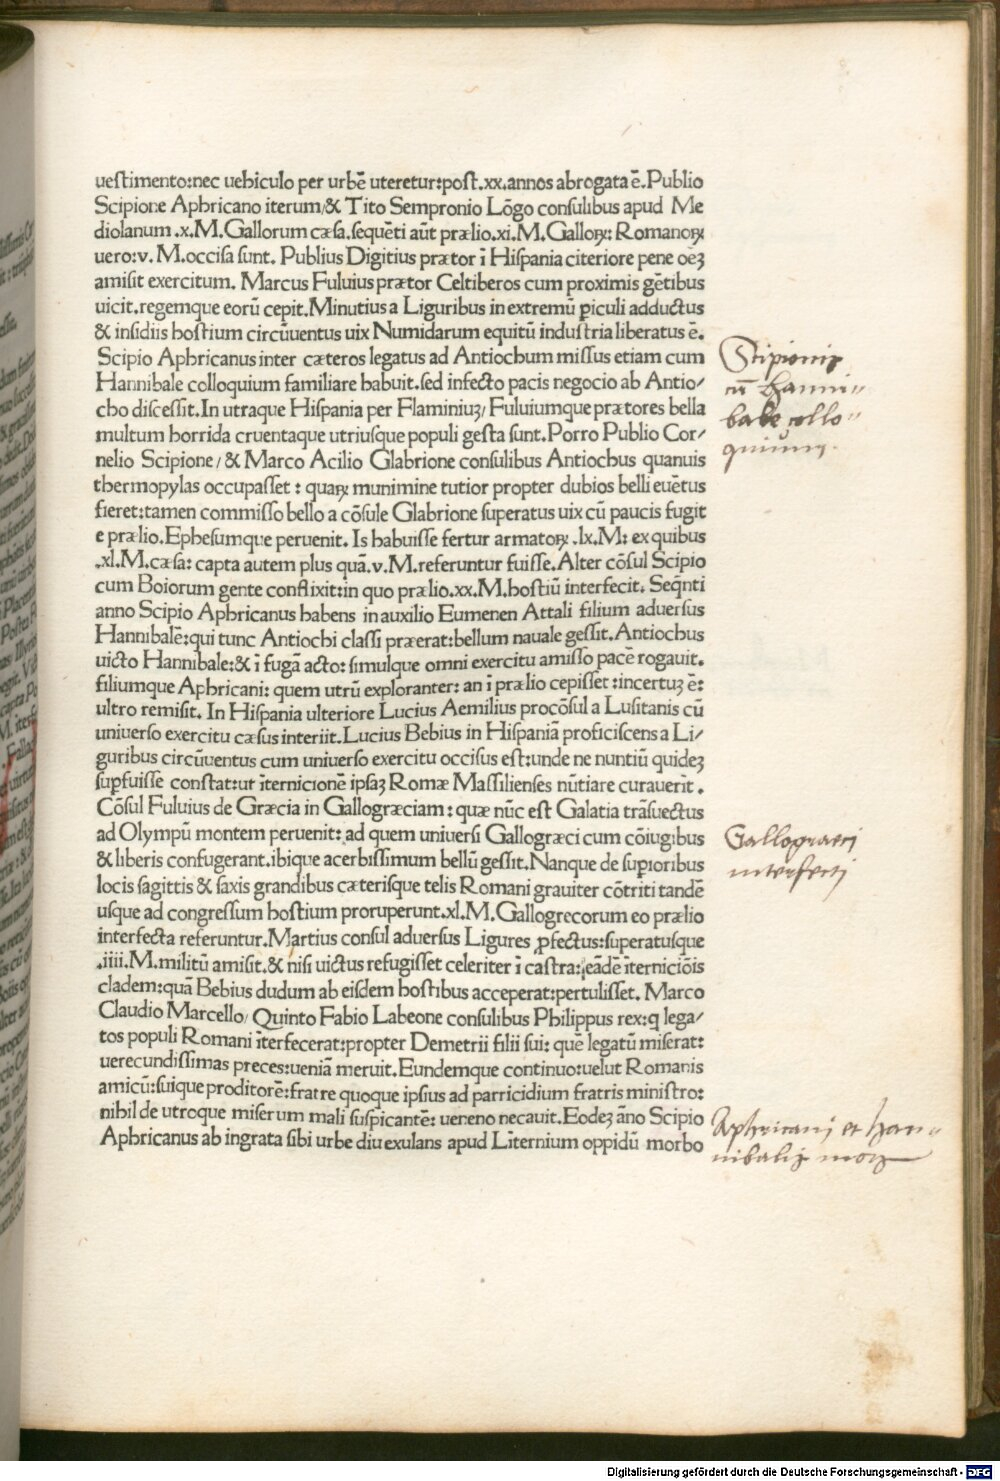 uestimento:nec uehiculo per urbē uteretur:post.xx.annos abrogata ē.Publio
Scipione Aphricano iterum/& Tito Sempronio Lōgo consulibus apud Me
diolanum .x.M.Gallorum cæsa.sequēti aūt prælio.xi.M.Galloꝝ: Romanoꝝ
uero:v. M.occisa sunt. Publius Digitius prætor ī Hispania citeriore pene oēꝫ
amisit exercitum. Marcus Fuluius prætor Celtiberos cum proximis gētibus
uicit.regemque eorū cepit.Minutius a Liguribus in extremū ꝑiculi adductus
& insidiis hostium circūuentus uix Numidarum equitū industria liberatus ē.
Scipio Aphricanus inter cæteros legatus ad Antiochum missus etiam cum
Hannibale colloquium familiare habuit.sed infecto pacis negocio ab Antio/
cho discessit.In utraque Hispania per Flaminiuꝫ/Fuluiumque prætores bella
multum horrida cruentaque utriusque populi gesta sunt.Porro Publio Cor/
nelio Scipione/& Marco Acilio Glabrione consulibus Antiochus quanuis
thermopylas occupasset : quaꝝ munimine tutior propter dubios belli euētus
fieret:tamen commisso bello a cōsule Glabrione superatus uix cū paucis fugit
e prælio.Ephesumque peruenit. Is habuisse fertur armatoꝝ .lx.M: ex quibus
.xl.M.cæsa: capta autem plus quā.v.M.referuntur fuisse.Alter cōsul Scipio
cum Boiorum gente conflixit:in quo prælio.xx.M.hostiū interfecit. Seqn̄ti
anno Scipio Aphricanus habens in auxilio Eumenen Attali filium aduersus
Hannibalē:qui tunc Antiochi classi præerat:bellum nauale gessit.Antiochus
uicto Hannibale:& ī fugā acto: simulque omni exercitu amisso pacē rogauit.
filiumque Aphricani: quem utrū exploranter: an ī prælio cepisset :incertuꝫ ē:
ultro remisit. In Hispania ulteriore Lucius Aemilius procōsul a Lusitanis cū
uniuerso exercitu cæsus interiit.Lucius Bebius in Hispaniā proficiscens a Li/
guribus circūuentus cum uniuerso exercitu occisus est:unde ne nuntiū quideꝫ
suꝑfuisse constat:ut īternicionē ipsaꝫ Romæ Massilienses nūtiare curauerīt.
Cōsul Fuluius de Græcia in Gallogræciam: quæ nūc est Galatia trāsuectus
ad Olympū montem peruenit: ad quem uniuersi Gallogræci cum cōiugibus
& liberis confugerant.ibique acerbissimum bellū gessit.Nanque de superioribus
locis sagittis & saxis grandibus cæterisque telis Romani grauiter cōtriti tandē
usque ad congressum hostium proruperunt.xl.M.Gallogrecorum eo prælio
interfecta referuntur.Martius consul aduersus Ligures ꝓfectus:superatusque
.iiii.M.militū amisit.& nisi uictus refugisset celeriter ī castra:eādē īterniciōis
cladem:quā Bebius dudum ab eisdem hostibus acceperat:pertulisset. Marco
Claudio Marcello/ Quinto Fabio Labeone consulibus Philippus rex:q lega/
tos populi Romani īterfecerat:propter Demetrii filii sui: quē legatū miserat:
uerecundissimas preces:ueniā meruit.Eundemque continuo:uelut Romanis
amicū:suique proditorē:fratre quoque ipsius ad parricidium fratris ministro:
nihil de utroque miserum mali suspicantē: ueneno necauit.Eodeꝫ āno Scipio
Aphricanus ab ingrata sibi urbe diu exulans apud Liternium oppidū morbo
Scipionis
cū Hanni-
bale collo-
quium.
Gallograeci
interfecti
Aphricani et Han-
nibalis mors